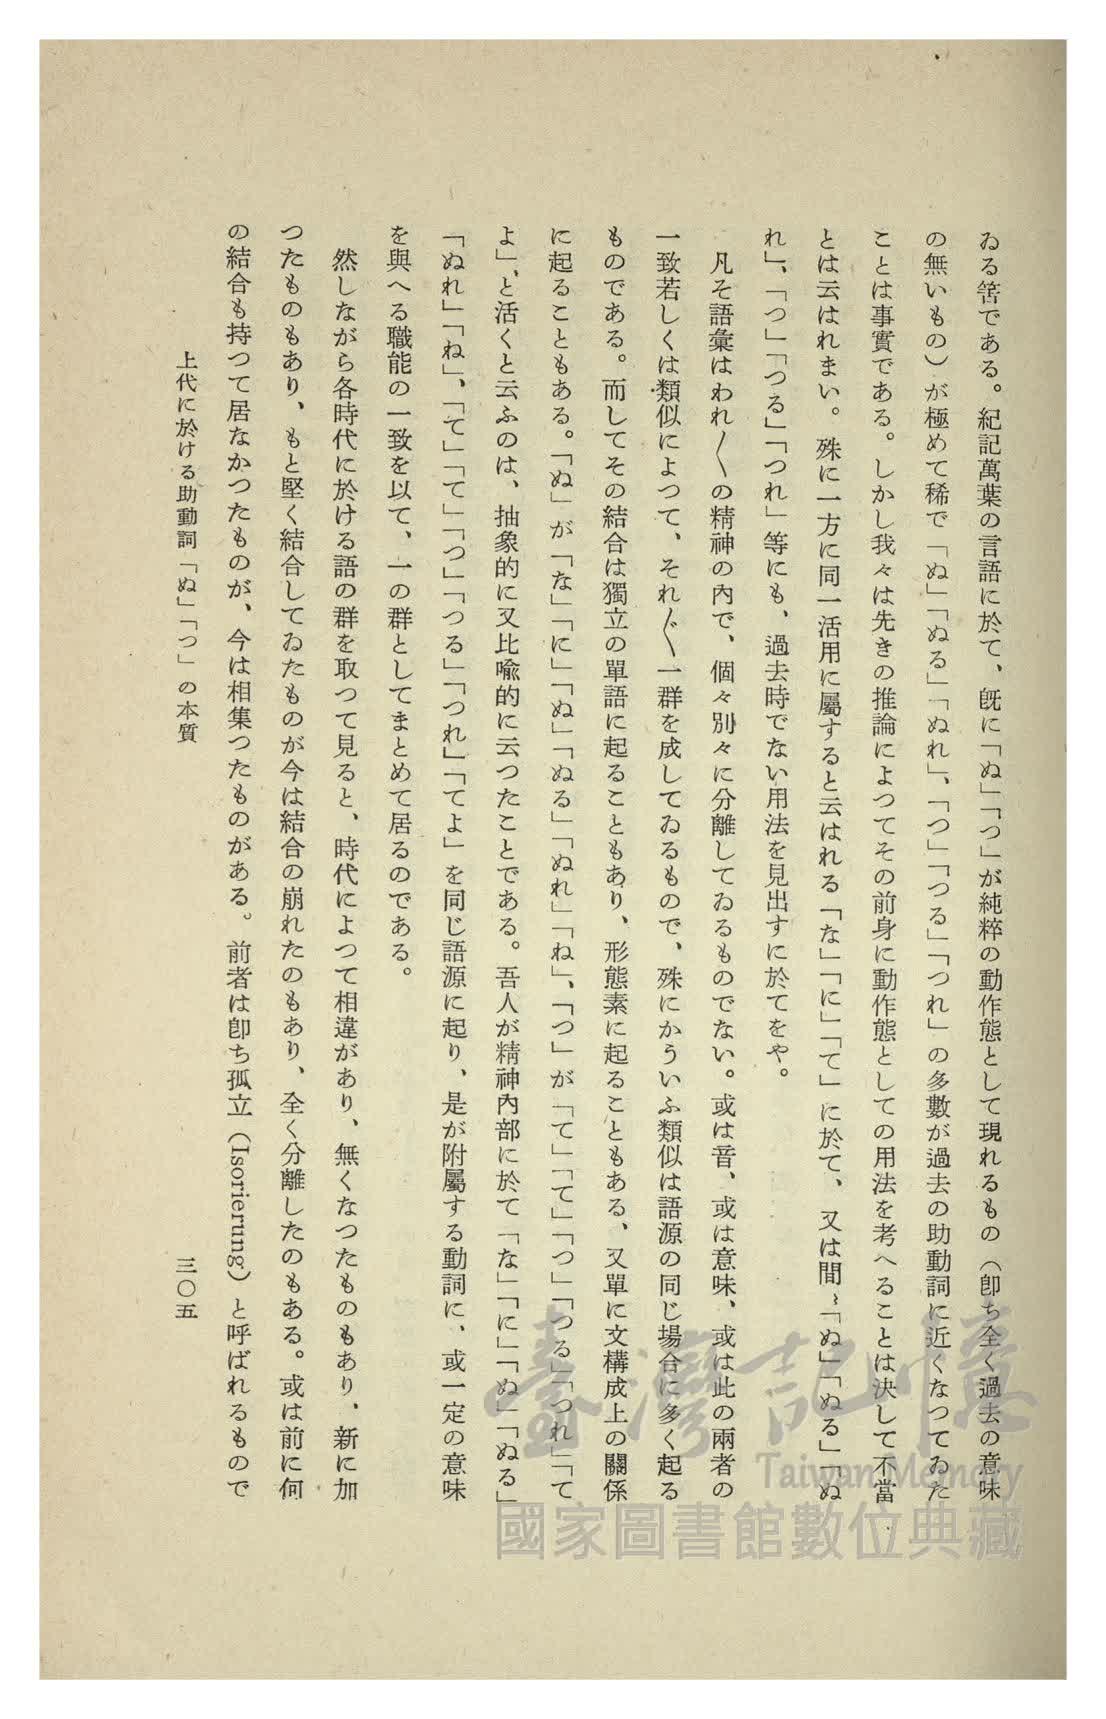 ゐる筈である。紀記萬葉の言語に於て、旣に「ぬ」「つ」が純粹の動作態として現れるもの（卽ち全く過去の意味
の無いもの）が極めて稀で「ぬ」「ぬる」「ぬれ」、「つ」「つる」「つれ」の多數が過去の助動詞に近くなつてゐた
ことは事實である。しかし我々は先きの推論によつてその前身に動作態としての用法を考へることは決して不當
とは云はれまい。殊に一方に同一活用に屬すると云はれる「な」「に」「て」に於て、又は間〻「ぬ」「ぬる」「ぬ
れ」、「つ」「つる」「つれ」等にも、過去時でない用法を見出すに於てをや。
凡そ語彙はわれ〳〵の精神の內で、個々別々に分離してゐるものでない。或は音、或は意味、或は此の兩者の
一致若しくは類似によつて、それ〴〵一群を成してゐるもので、殊にかういふ類似は語源の同じ場合に多く起る
ものである。而してその結合は獨立の單語に起ることもあり、形態素に起ることもある、又單に文構成上の關係
に起ることもある。「ぬ」が「な」「に」「ぬ」「ぬる」「ぬれ」「ね」、「つ」が「て」「て」「つ」「つる」「つれ」「て
よ」、と活くと云ふのは、抽象的に又比喩的に云つたことである。吾人が精神內部に於て「な」「に」「ぬ」「ぬる」
「ぬれ」「ね」、「て」「て」「つ」「つる」「つれ」「てよ」を同じ語源に起り、是が附屬する動詞に、或一定の意味
を與へる職能の一致を以て、一の群としてまとめて居るのである。
然しながら各時代に於ける語の群を取つて見ると、時代によつて相違があり、無くなつたものもあり、新に加
つたものもあり、もと堅く結合してゐたものが今は結合の崩れたのもあり、全く分離したのもある。或は前に何
の結合も持つて居なかつたものが、今は相集つたものがある。前者は卽ち孤立（Isorierung）と呼ばれるもので
上代に於ける助動詞「ぬ」「つ」の本質
三〇五
臺灣記憶
Taiwan Memory
國家圖書館數位典藏